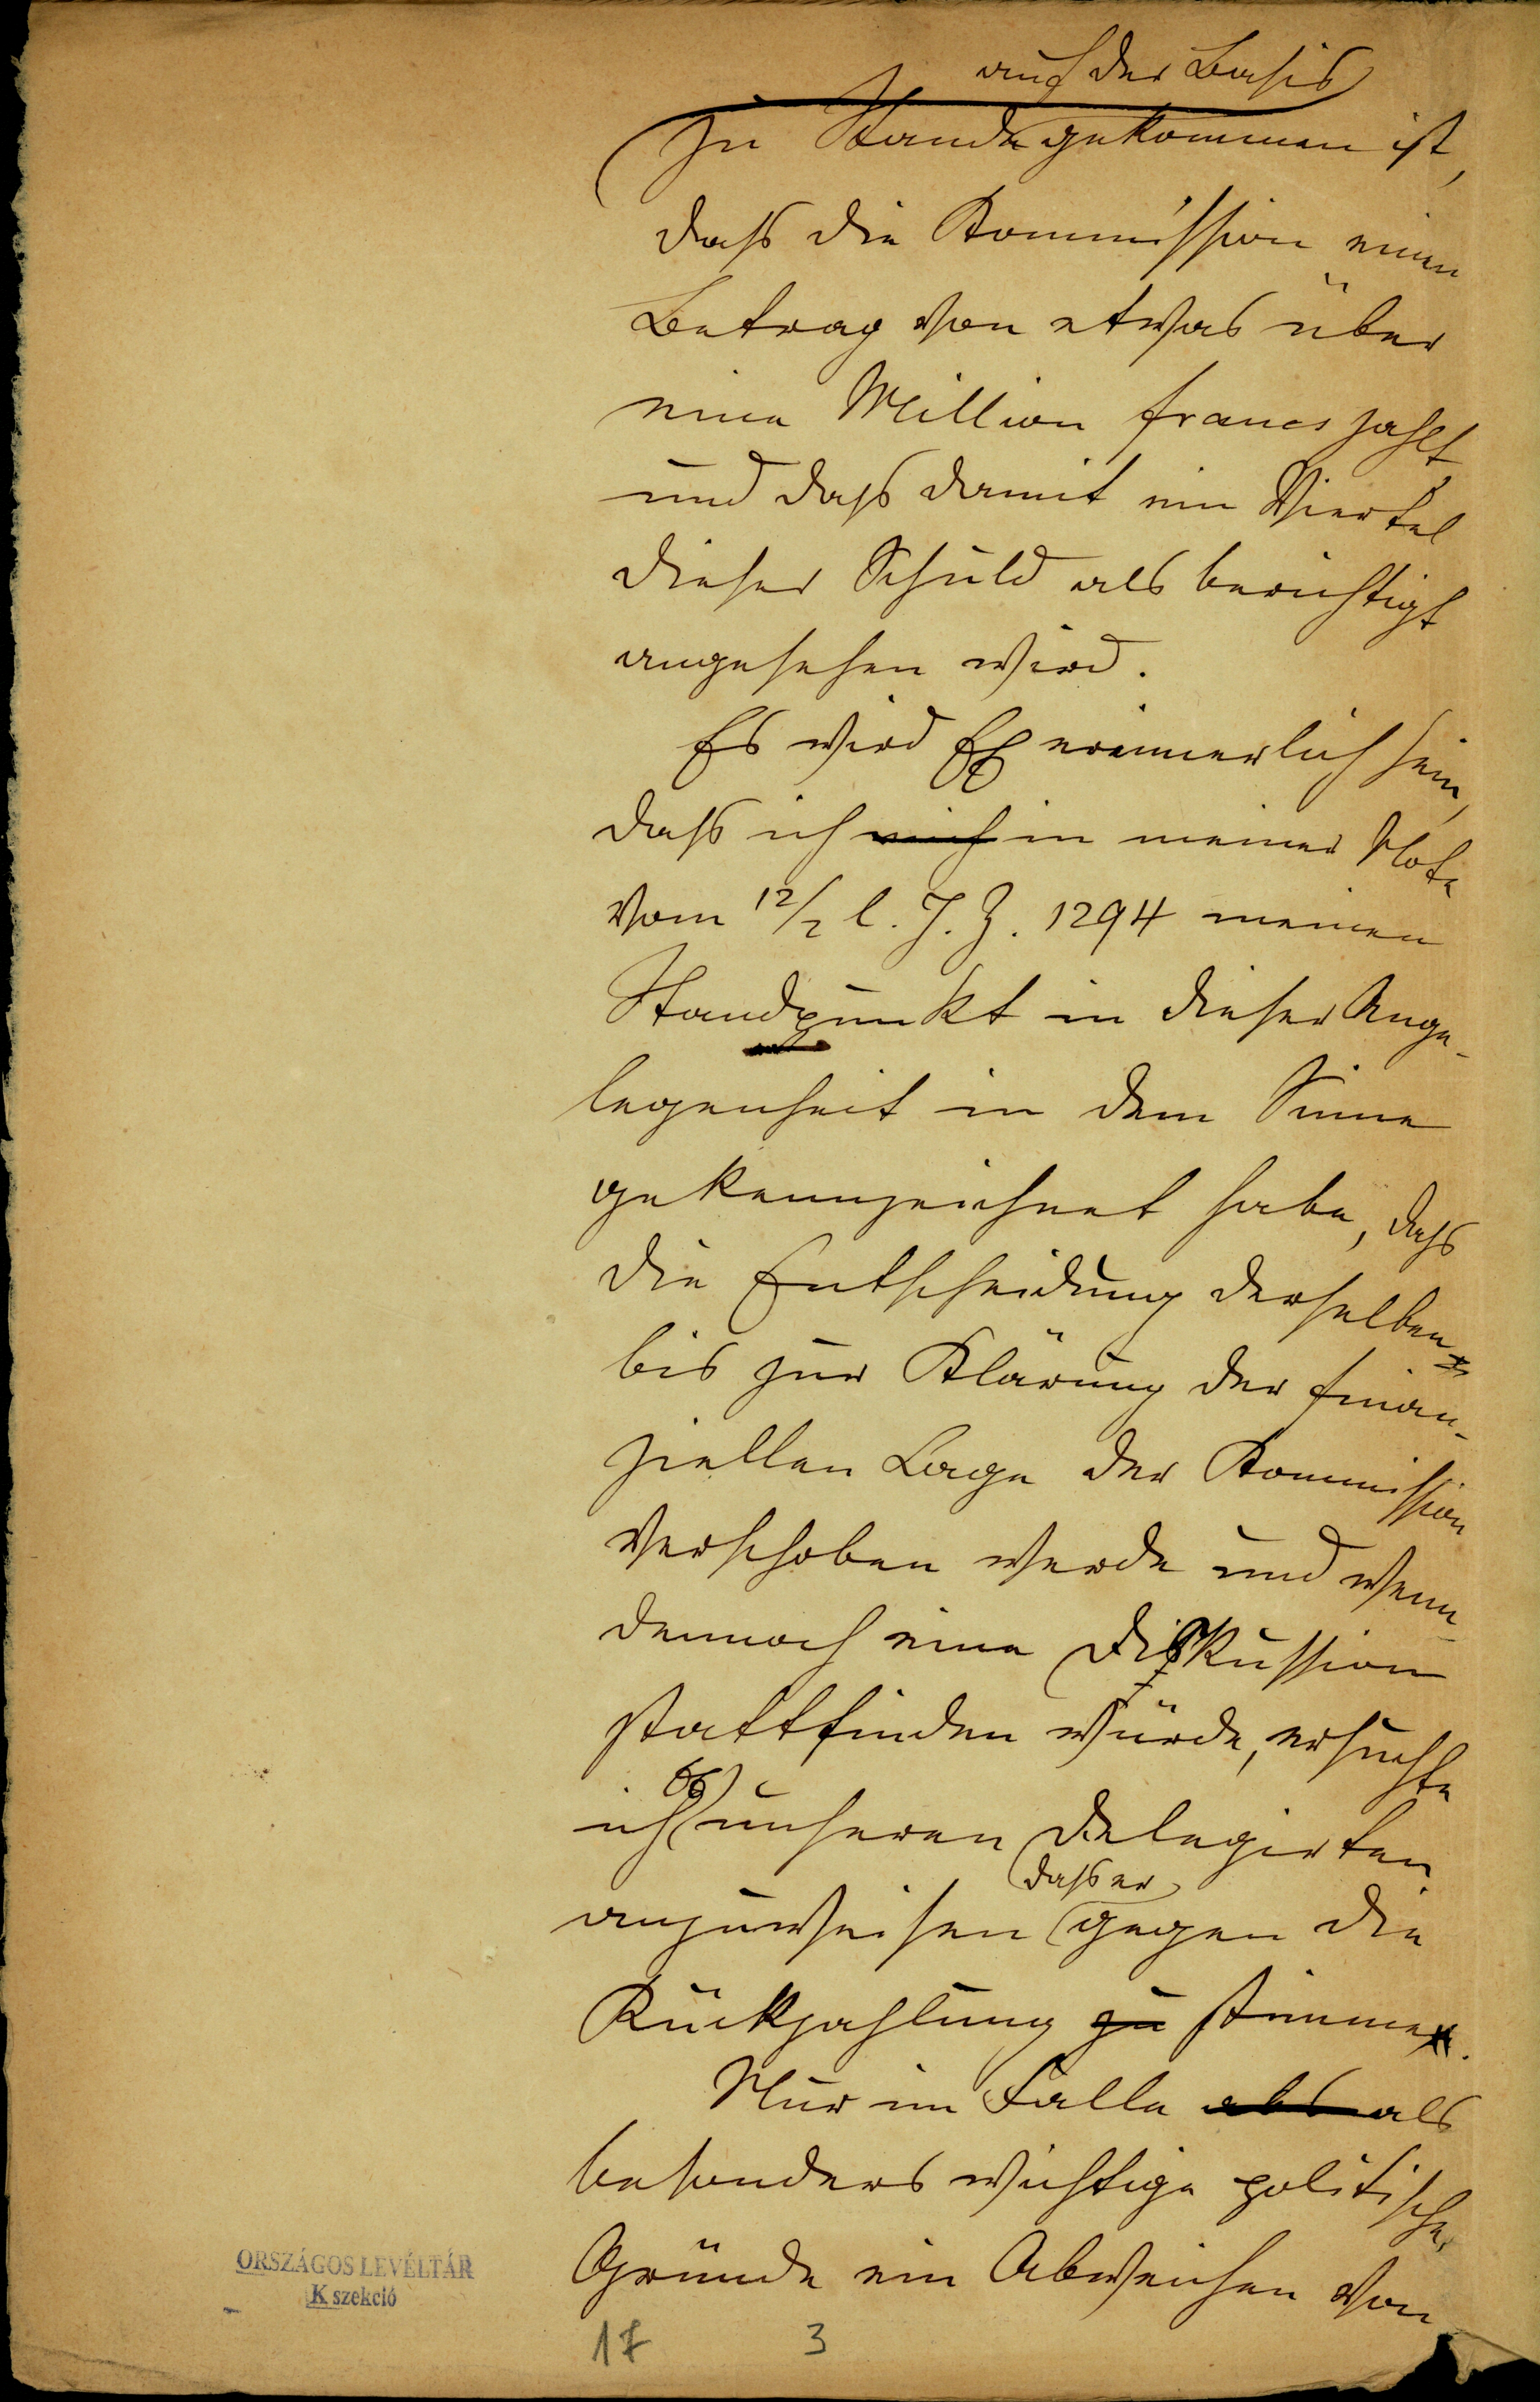 auf der Basis
zu Stande gekommen ist,
dass die Kommission einen
Betrag von etwas über
eine Million francs zahlt
und dass damit ein Viertel
dieser Schuld als berichtigt
angesehen wird.
Es wird EE erinnerlich sein,
dass ich mich in meiner Note
vom 12/2 l. J. Z. 1294 meinen
Standpunkt in dieser Ange-
legenheit in dem Sinne
gekennzeichnet habe, dass
die Entscheidung derselben
bis zur Klärung der finan-
ziellen Lage der Kommission
verschoben werde und wenn
dennoch eine Diskussion
stattfinden würde, ersuchte
ich unseren Delegirten
dass er
anzuweisen gegen die
Rückzahlung zu stimme.
Nur im Falle als als
besonders wichtige politische
Gründe ein Abweichen von
ORSZÁGOS LEVÉLTÁR
K szekció
17 3